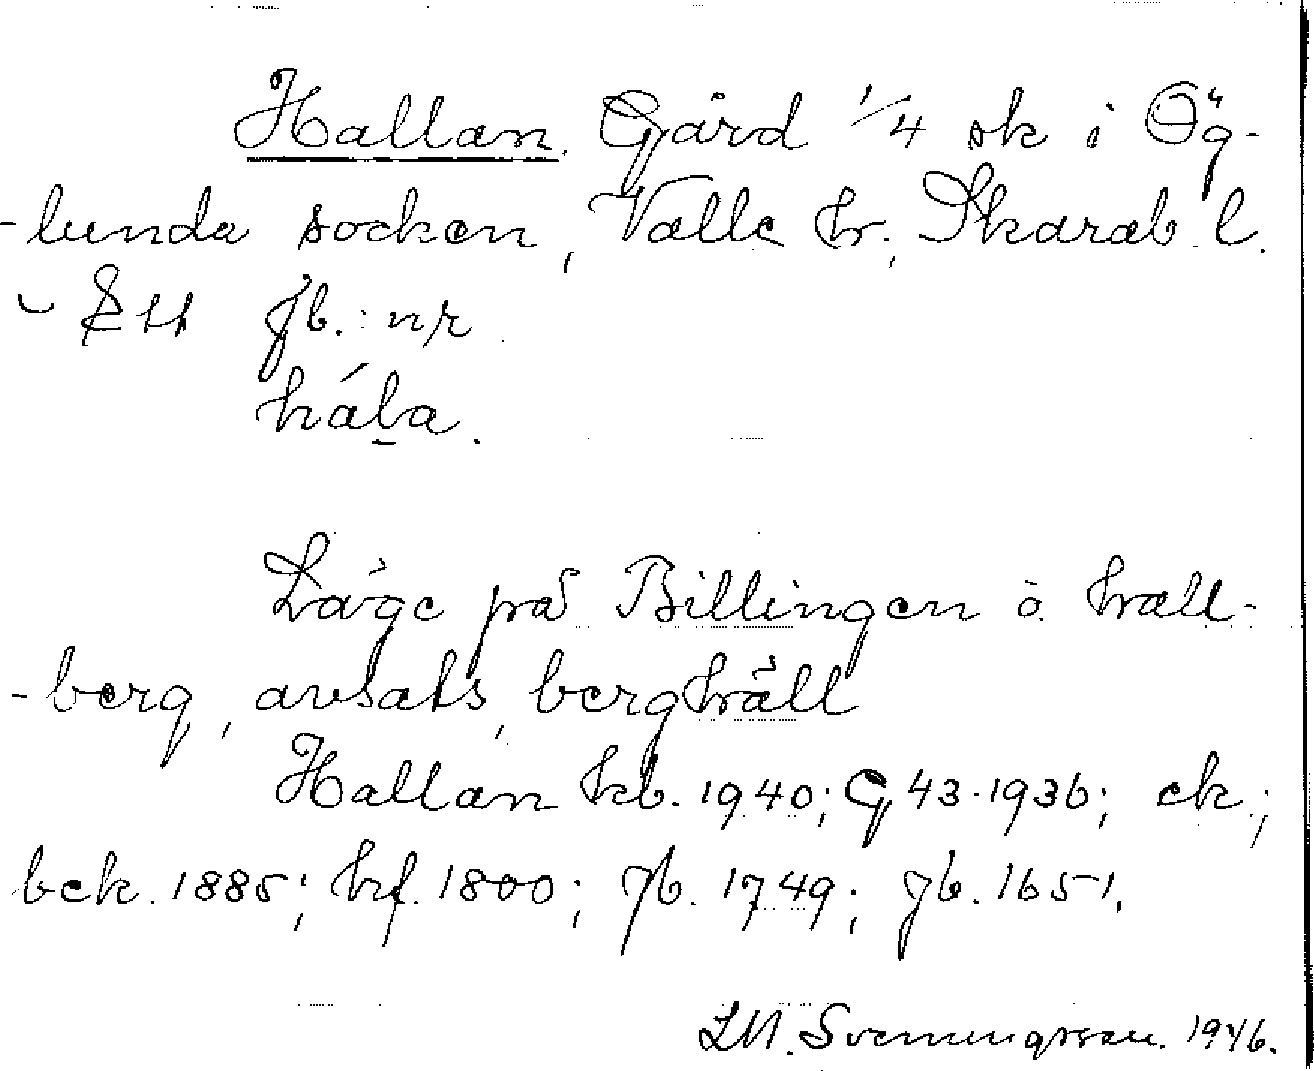 Hallan. Gård 1/4 sk i Ög-
-lunda socken, Valle hr, Skarab. l.
Ett jb.: nr
háḻa.
Läge på Billingen ö. hall-
-berg, avsats, berghäll
Hallan kb. 1940; G 43. 1936; ek.;
bek. 1885; hrf. 1800; jb. 1749; jb. 1651.
Svenningsson. 1946.